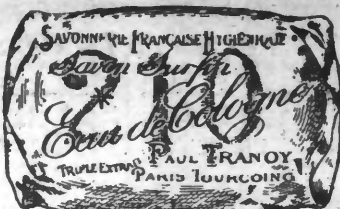 SAVONNERIE FRANÇAISE HYGIÉNIQUE
Savon Surfin
710
Eau de Cologne
TRIPLE EXTRAIT PAUL TRANOY
PARIS TOURCOING